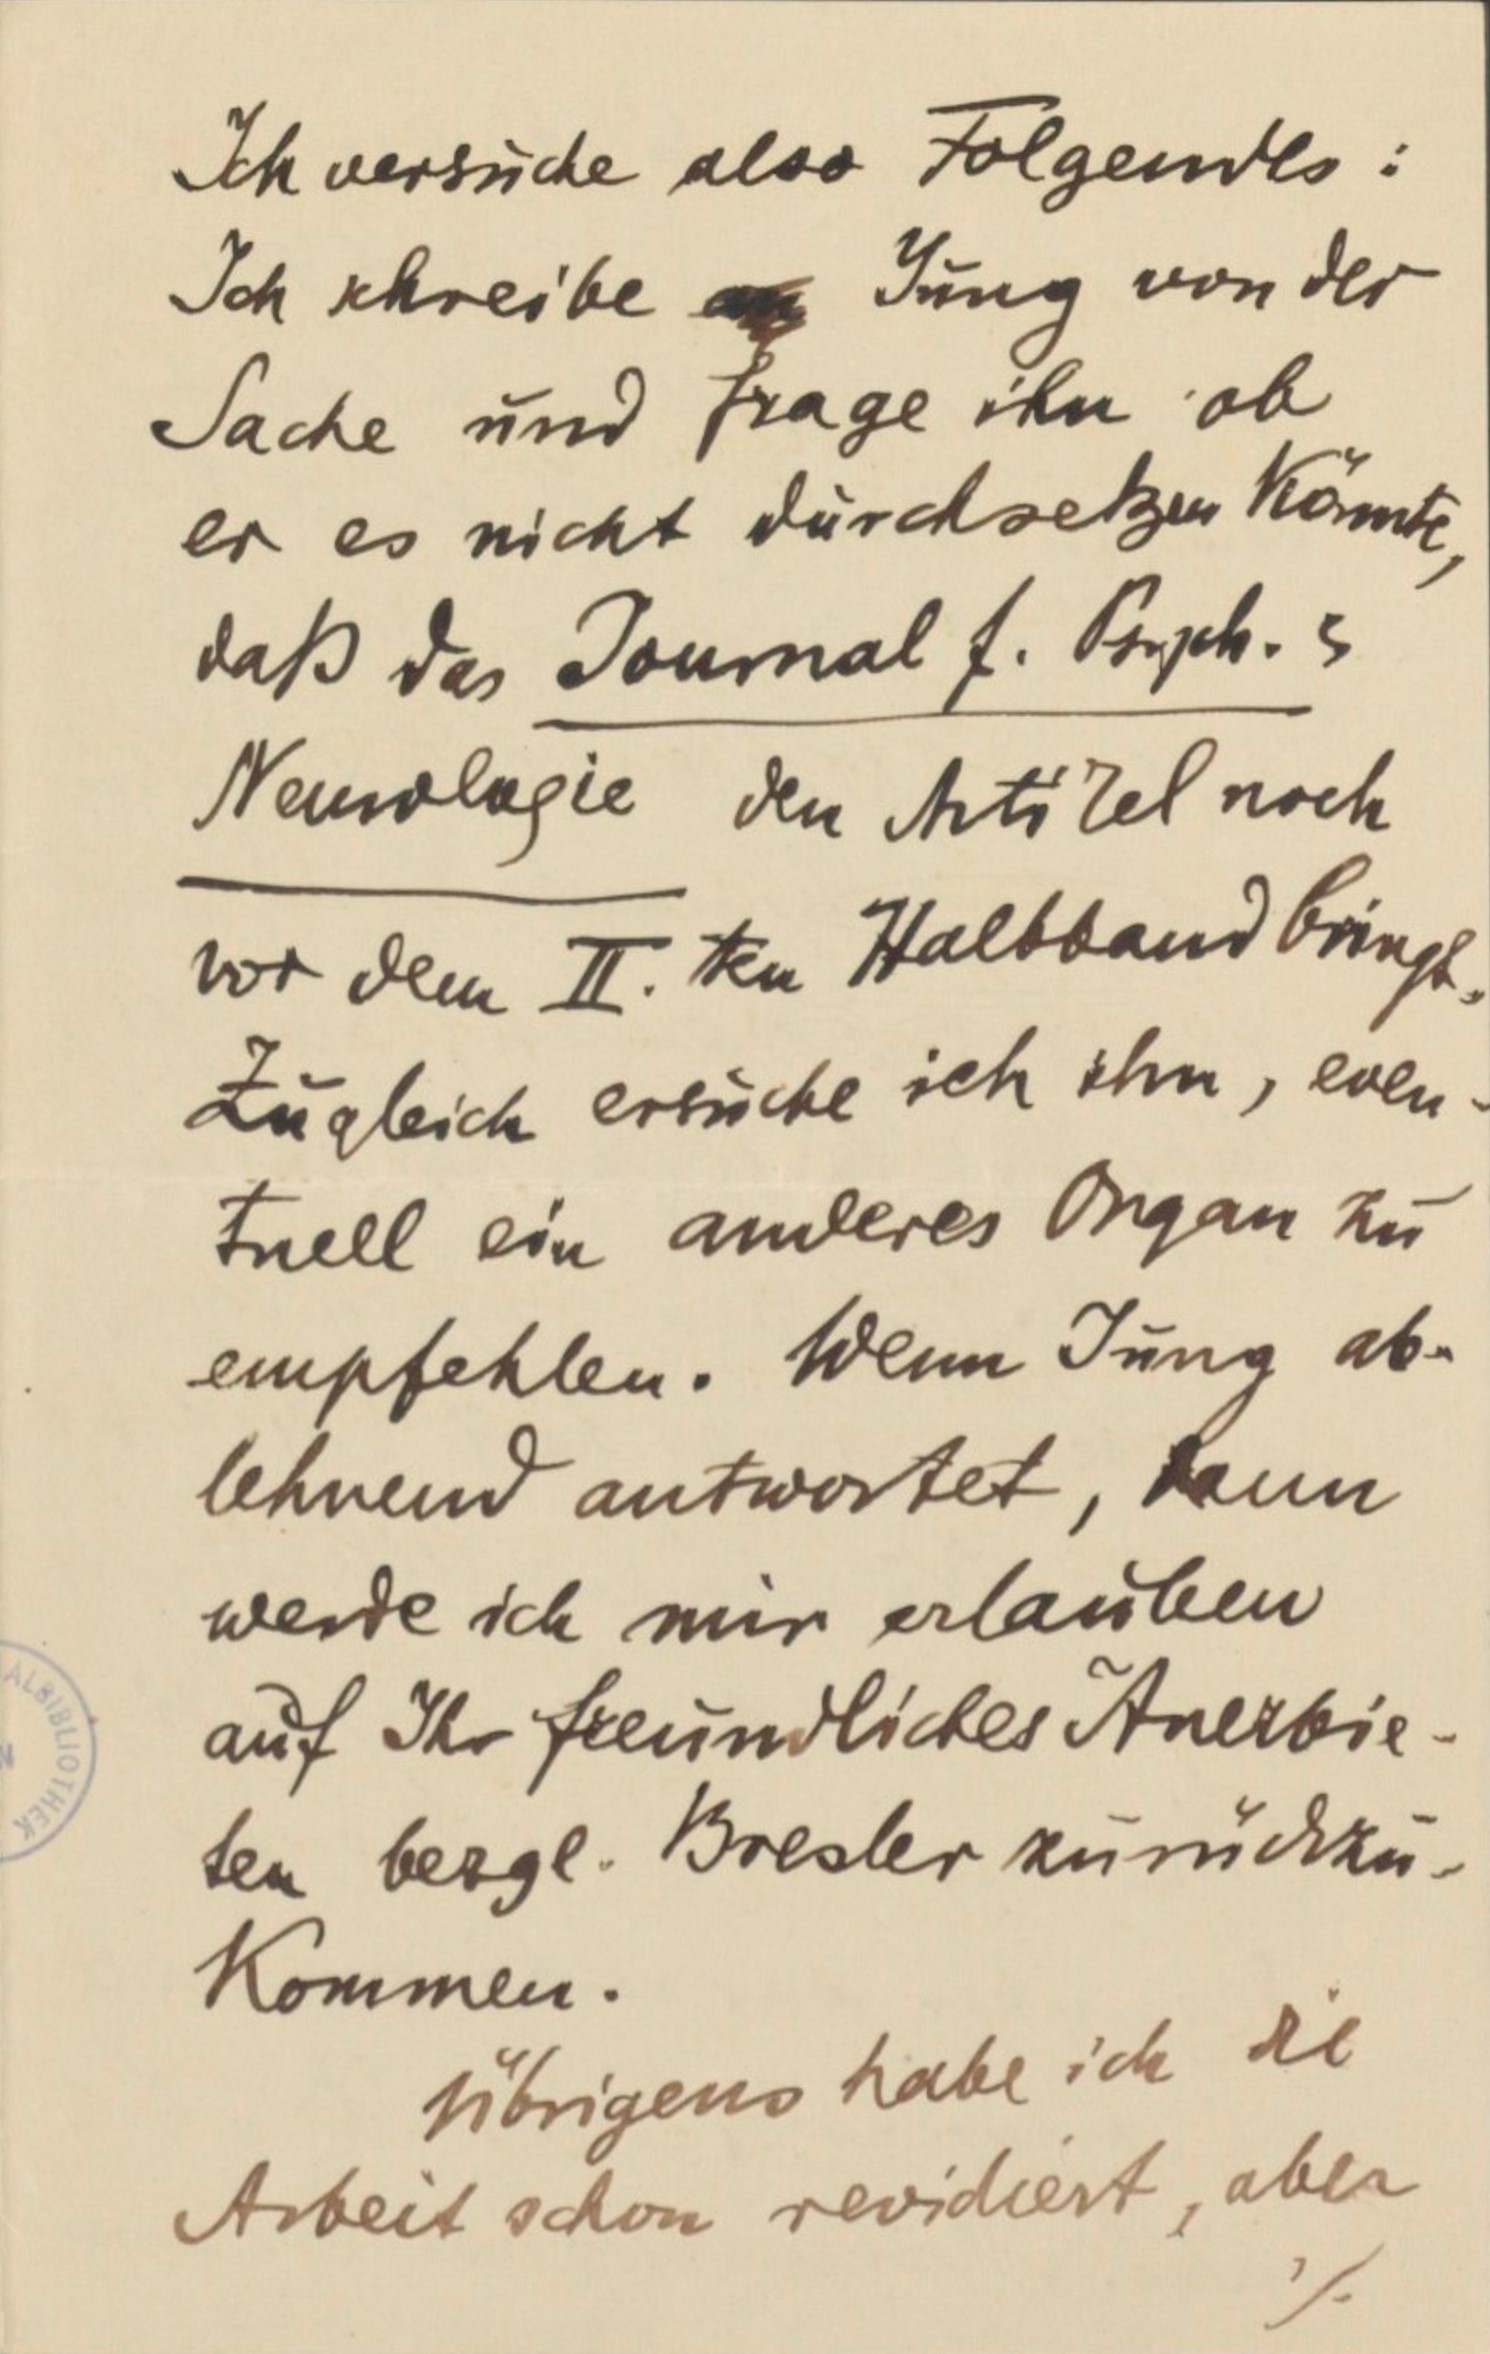 Ich versuche also Folgendes:
Ich schreibe an Jung von der
Sache und frage ihn ob
er es nicht durchsetzen könnte,
daß das Journal f. Psych. &
Neurologie den Artikel noch
vor dem II. ten Halbband bringt.
Zugleich ersuche ich ihn, even-
tuell ein anderes Organ zu
empfehlen. Wenn Jung ab-
lehnend antwortet, dann
werde ich mir erlauben
auf Ihr freundliches Anerbie-
ten bezgl. Bresler zurückzu-
kommen.
Übrigens habe ich die
Arbeit schon revidiert, aber
./.
ALBIBLIOTHEK